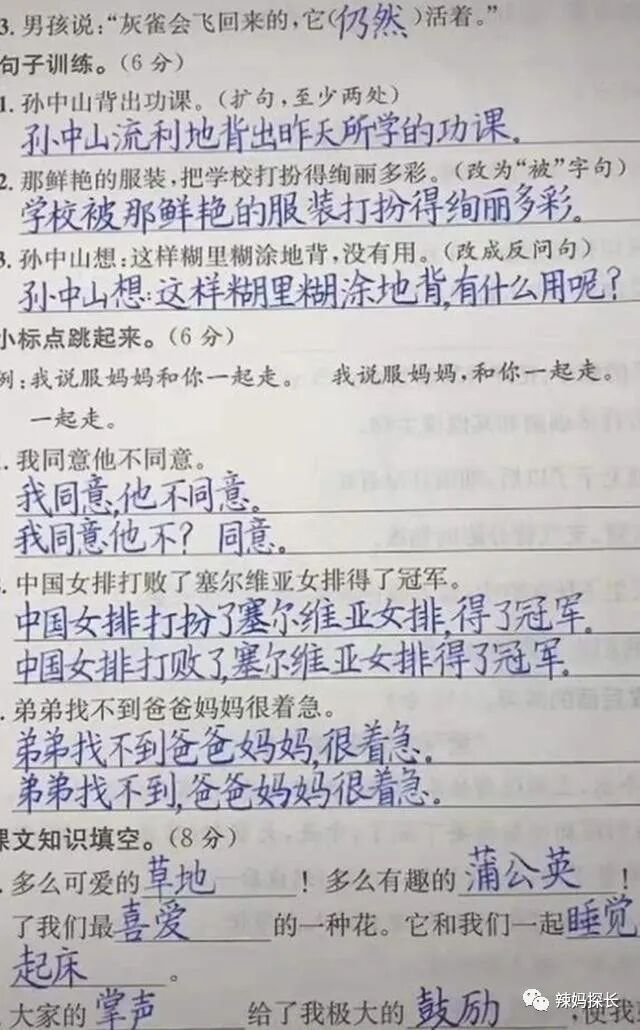 3. 男孩说：“灰雀会飞回来的，它（仍然）活着。”
句子训练。（6分）
1. 孙中山背出功课。（扩句，至少两处）
孙中山流利地背出昨天所学的功课。
2. 那鲜艳的服装，把学校打扮得绚丽多彩。（改为“被”字句）
学校被那鲜艳的服装打扮得绚丽多彩。
3. 孙中山想：这样糊里糊涂地背，没有用。（改成反问句）
孙中山想：这样糊里糊涂地背，有什么用呢？
小标点跳起来。（6分）
例：我说服妈妈和你一起走。 我说服妈妈，和你一起走。
一起走。
我同意他不同意。
我同意，他不同意。
我同意他不？同意。
中国女排打败了塞尔维亚女排得了冠军。
中国女排打扮了塞尔维亚女排，得了冠军。
中国女排打败了，塞尔维亚女排得了冠军。
弟弟找不到爸爸妈妈很着急。
弟弟找不到爸爸妈妈，很着急。
弟弟找不到，爸爸妈妈很着急。
课文知识填空。（8分）
多么可爱的草地！多么有趣的蒲公英！
了我们最喜爱的一种花。它和我们一起睡觉
起床。
大家的掌声给了我极大的鼓励，使我
辣妈探长